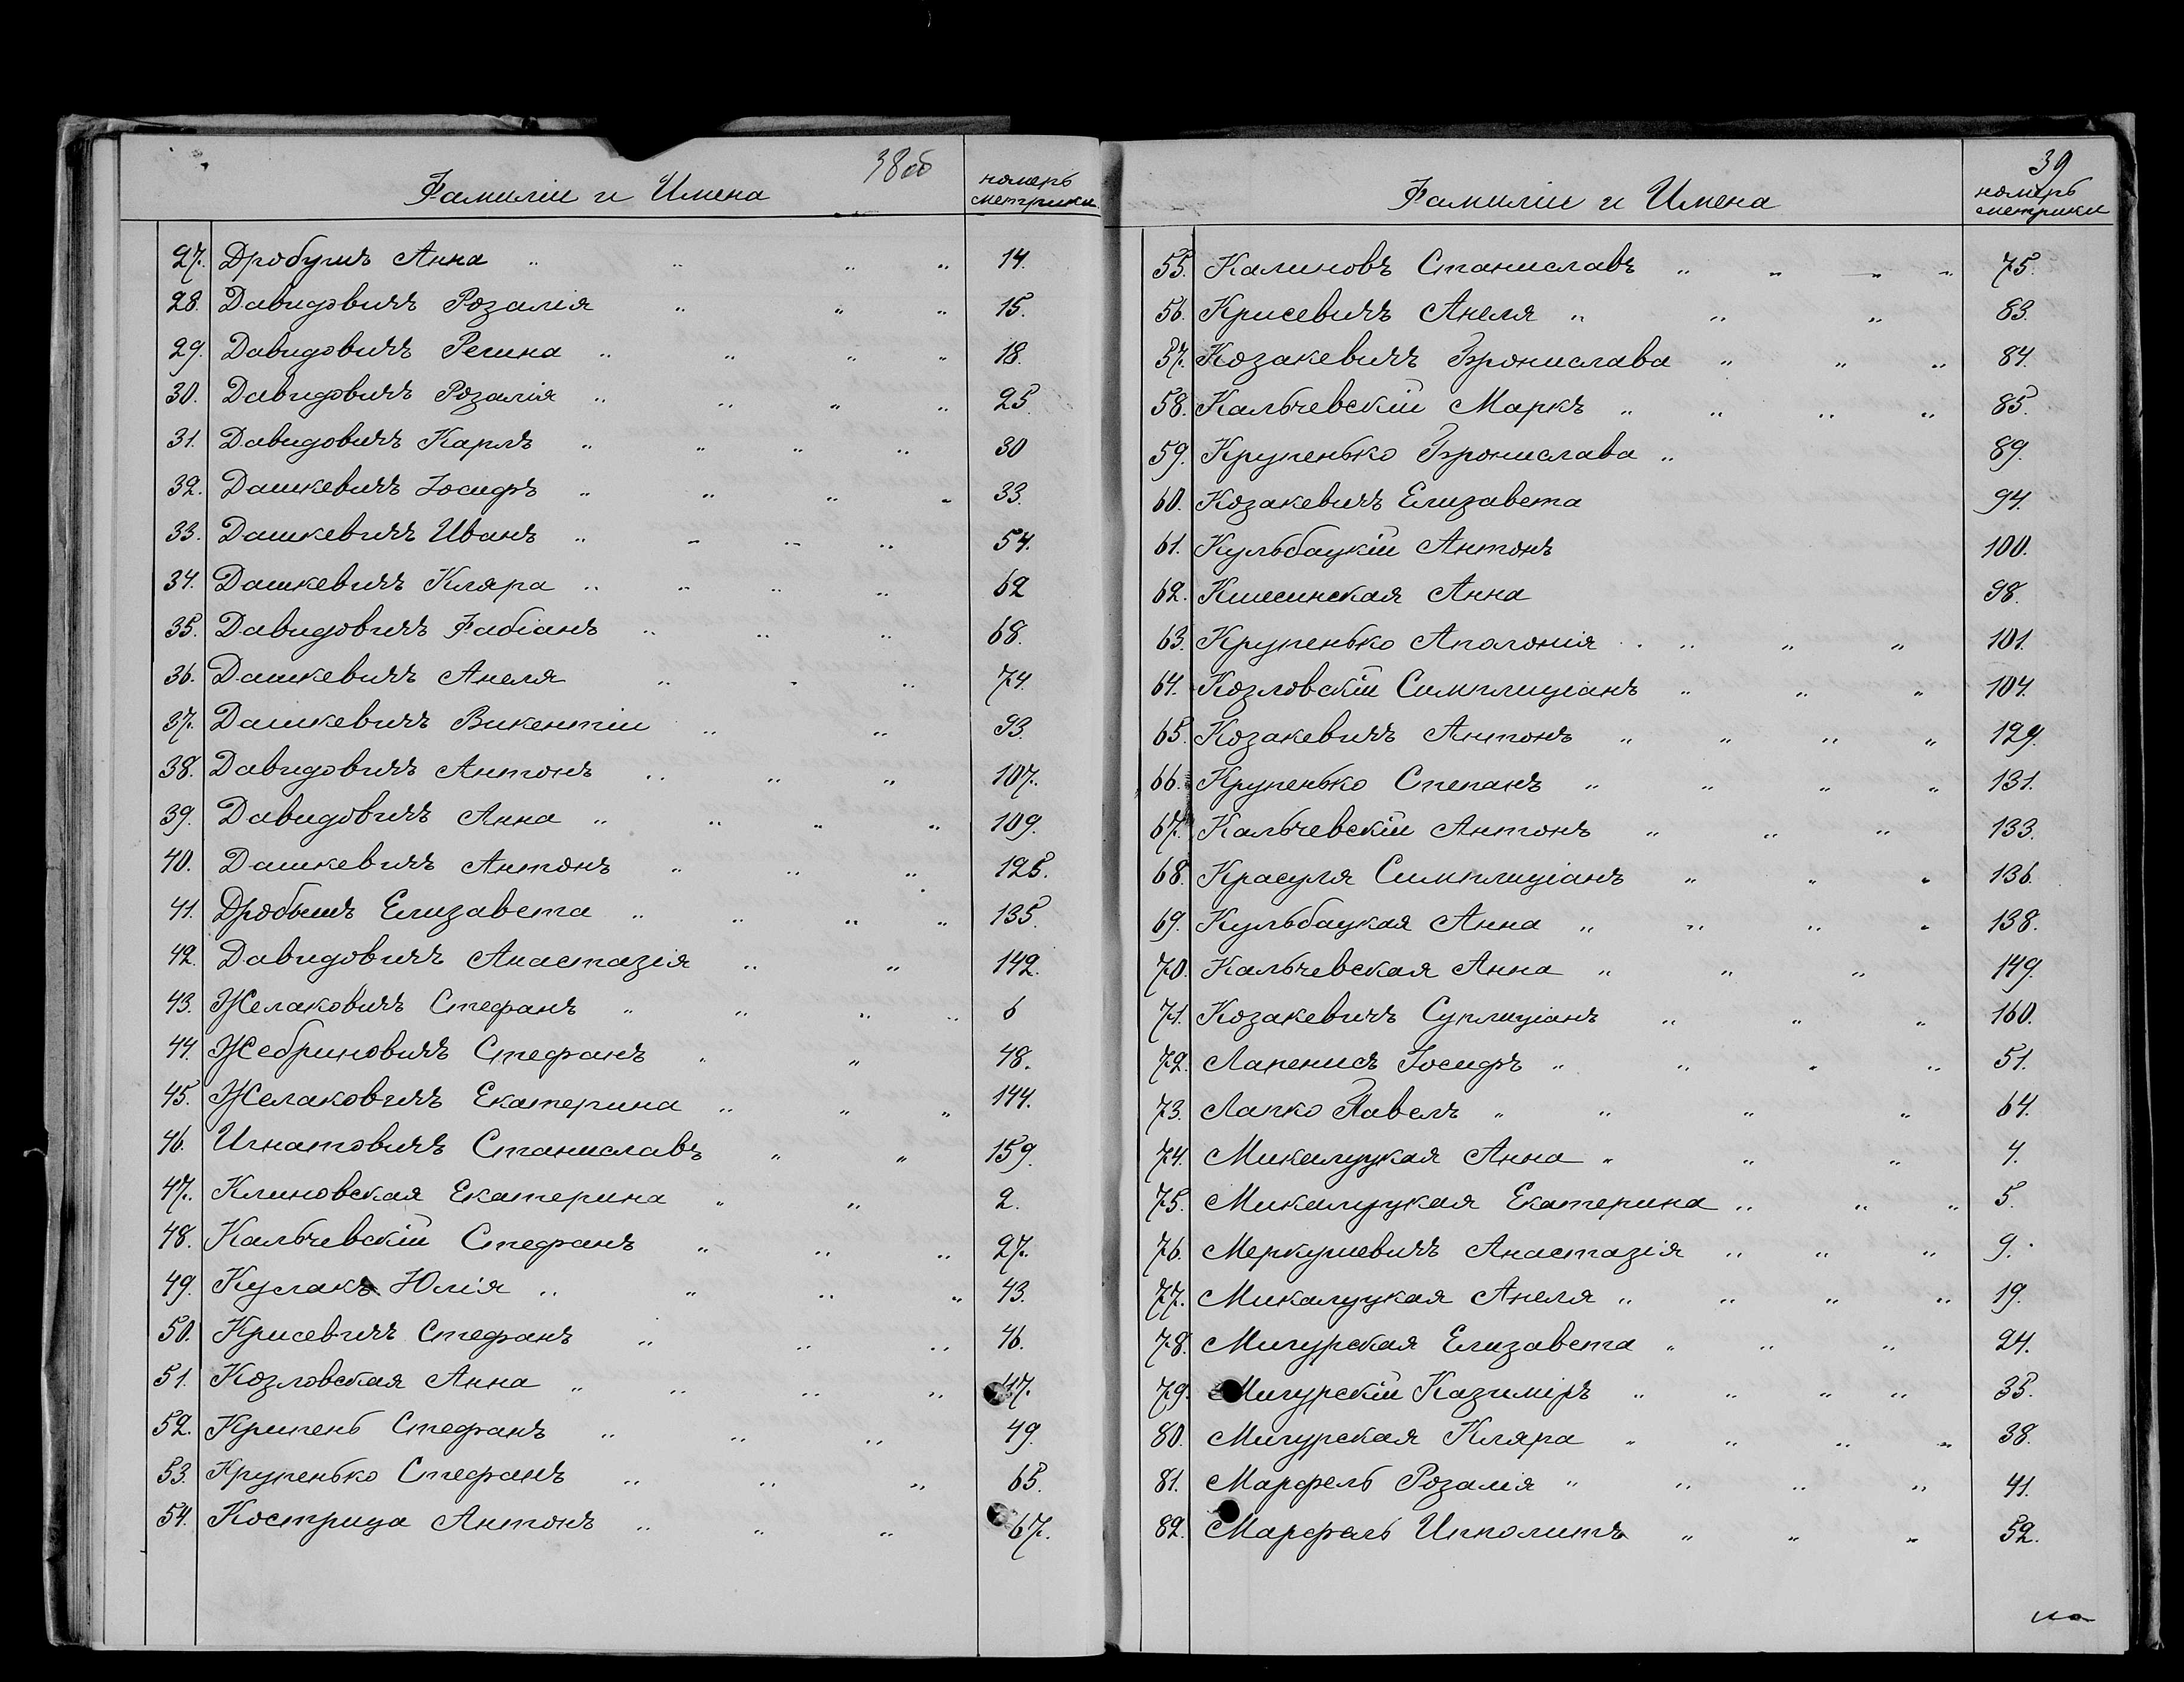 38 об
Фамиліи и Имена номеръ метрики
27. Дробушъ Анна 14.
28. Давидовичъ Розалія 15.
29. Давидовичъ Регина 18.
30. Давидовичъ Розалія 25.
31. Давидовичъ Карлъ 30
32. Дашкевичъ Іосифъ 33.
33. Дашкевичъ Иванъ 54.
34. Дашкевичъ Кляра 62
35. Давидовичъ Фабіанъ 68.
36. Дашкевичъ Анеля 74.
37. Дашкевичъ Викентій 93.
38. Давидовичъ Антонъ 107.
39. Давидовичъ Анна 109.
40. Дашкевичъ Антонъ 125.
41. Дробышъ Елизавета 135.
42. Давидовичъ Анастазія 142.
43. Желаковичъ Стефанъ 6
44. Жебриновичъ Стефанъ 48.
45. Желаковичъ Екатерина 144.
46. Игнатовичъ Станиславъ 159.
47. Клиновская Екатерина 2.
48. Кальчевскій Стефанъ 27.
49. Кулакъ Юлія 43.
50. Крисевичъ Стефанъ 46.
51. Козловская Анна 47.
52. Крипень Стефанъ 49.
53. Крупенько Стефанъ 65.
54. Кострица Антонъ 67.
39
Фамиліи и Имена номеръ метрики
55. Калиновъ Станиславъ 75.
56. Крисевичъ Анеля 83.
57. Козакевичъ Бронислава 84.
58. Кальчевскій Маркъ 85.
59. Крупенько Бронислава 89.
60. Козакевичъ Елизавета 94.
61. Кульбацкій Антонъ 100.
62. Кшесинская Анна 98.
63. Крупенько Аполонія 101.
64. Козловскій Симплиціанъ 104.
65. Козакевичъ Антонъ 129.
66. Крупенько Степанъ 131.
67. Кальчевскій Антонъ 133.
68. Красуля Симплиціанъ 136.
69. Кульбацкая Анна 138.
70. Кальчевская Анна 149.
71. Козакевичъ Суплиціанъ 160.
72. Лапенисъ Іосифъ 51.
73. Лапко Павелъ 64.
74. Микалуцкая Анна 4.
75. Микалуцкая Екатерина 5.
76. Меркулевичъ Анастазія 9.
77. Микалуцкая Анеля 19.
78. Мигурская Елизавета 24.
79. Мигурскій Казиміръ 35.
80. Мигурская Кляра 38.
81. Марфель Розалія 41.
82. Марфель Ипполитъ 52.